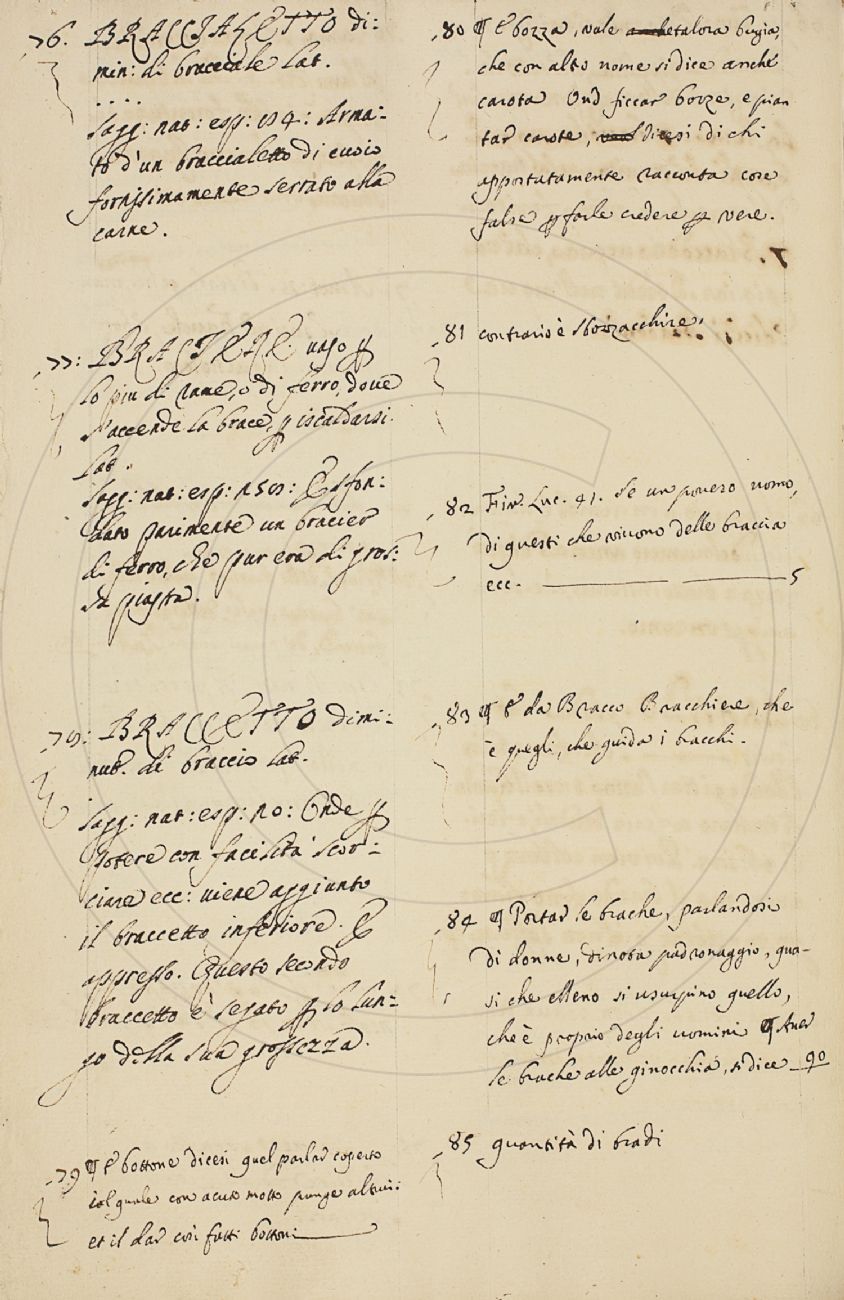 76. BRACCIALETTO di:
min: di bracciale Lat.
. . . .
Sagg: nat: esp: 134: Arma:
to d'un braccialetto di cuoio
fortissimamente serrato alla
carne.
77: BRACIERE. vaso ꝑ
lo piu di rame, o di ferro, dove
s'accende la brace, ꝑ iscaldarsi.
Lat.
Sagg: nat: esp: 153: E sfon:
dato parimente un bracier
di ferro, che pur era di gros:
sa piastra.
78: BRACCETTO dimi:
nut. di braccio Lat.
Sagg: nat: esp: 10: Onde ꝑ
potere con facilità scor:
ciare ecc: viene aggiunto
il braccetto inferiore. E
appresso. Questo secondo
braccetto è segato ꝑ lo lun:
go della sua grossezza.
79 ¶ E bottone dicesi quel parlar coperto
col quale con acuto motto punge altrui:
et il dar così fatti bottoni
80 ¶ E bozza, vale talora bugia,
che con altro nome si dice anche
carota Ond ficcar bozze, e pian
tar carote, dicesi di chi
apportatamente racconta cose
false ꝑ farle credere ꝑ vere.
7.
81 contrario è sbozzacchire.
82 Fir. Luc. 41. Se un povero uomo,
di questi che vivono delle braccia
ecc. 5
83 ¶ E da Bracco Bracchiere, che
è quegli, che guida i bracchi.
84 ¶ Portar le brache, parlandosi
di donne, dinota padronaggio, qua-
si che elleno si usurpino quello,
che è proprio degli uomini ¶ Aver
le brache alle ginocchia, si dice 90
85 quantità di bradi